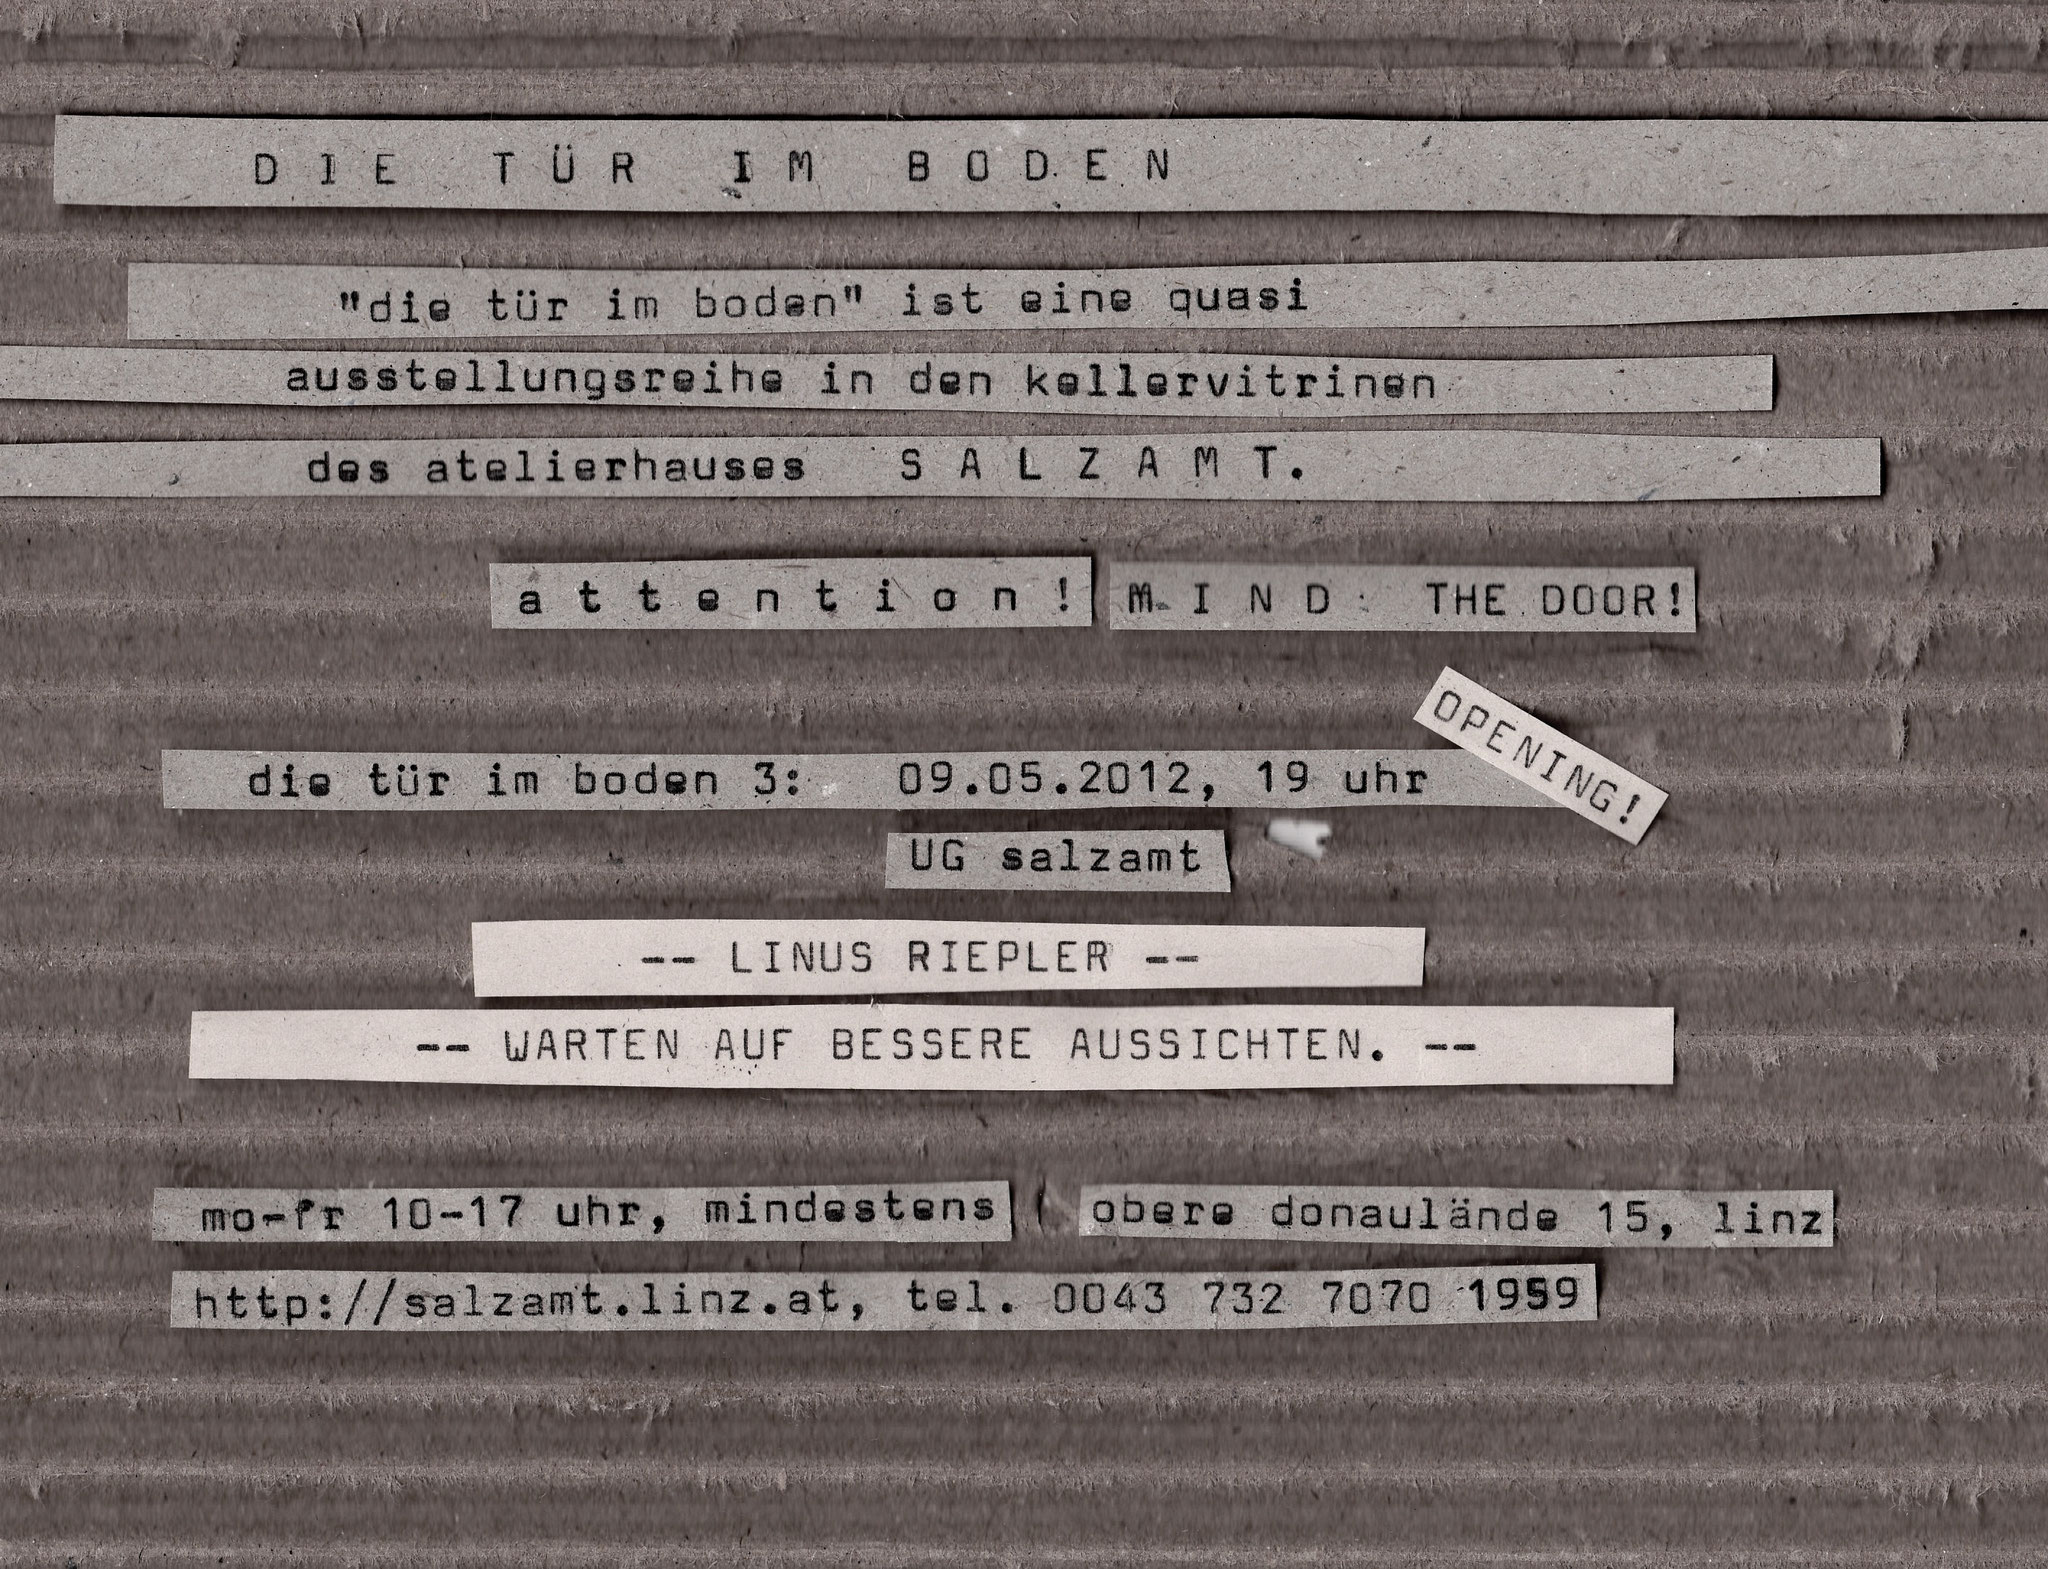 DIE TÜR IM BODEN
"die tür im boden" ist eine quasi
ausstellungsreihe in den kellervitrinen
des atelierhauses SALZAMT.
attention! MIND THE DOOR!
OPENING!
die tür im boden 3: 09.05.2012, 19 uhr
UG salzamt
-- LINUS RIEPLER --
-- WARTEN AUF BESSERE AUSSICHTEN. --
mo-fr 10-17 uhr, mindestens obere donaulände 15, linz
http://salzamt.linz.at, tel. 0043 732 7070 1959